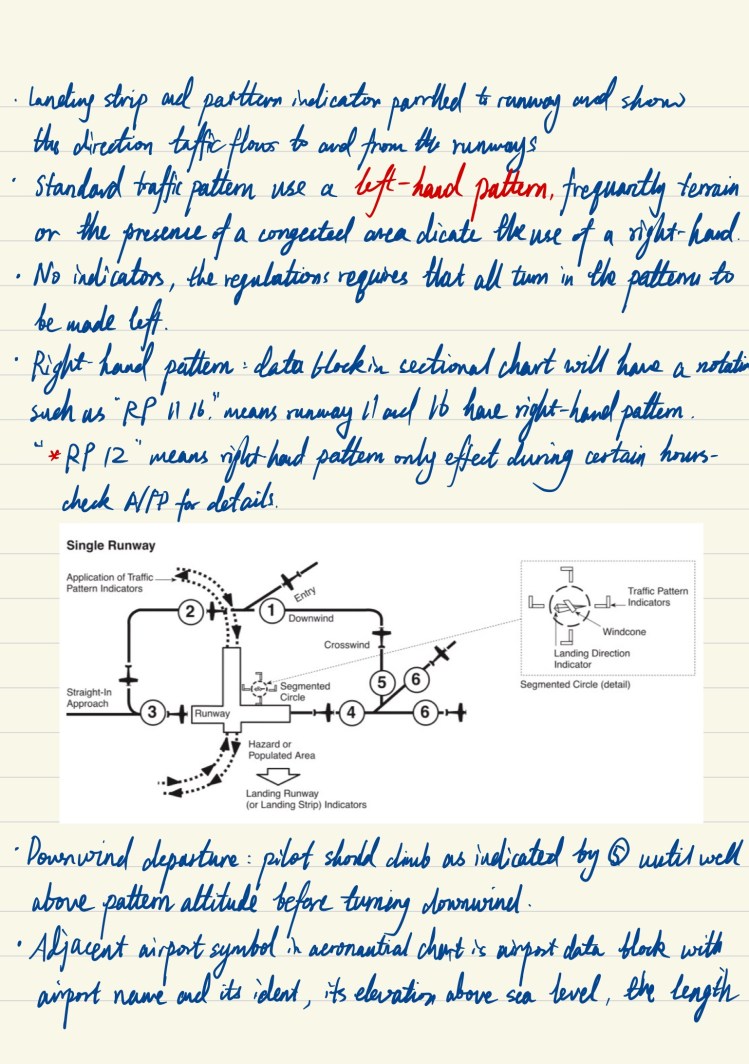 · Landing strip and parttern indicator parrlled to runway and show
the direction taffic flows to and from the runways
· Standard traffic pattern use a left-hand pattern, frequantly terrain
or the presence of a congested area dicate the use of a right-hand.
· No indicators, the regulations requires that all turn in the patterns to
be made left.
· Right-hand pattern: data block in sectional chart will have a notatin
such as "RP 11 16." means runway 11 and 16 have right-hand pattern.
"*RP 12" means right-hand pattern only effect during certain hours-
check A/FD for details.
Single Runway
Application of Traffic
Pattern Indicators
Entry
2
1
Downwind
Crosswind
Traffic Pattern
Indicators
Windcone
Landing Direction
Indicator
Segmented Circle (detail)
5
6
Segmented
Circle
Straight-In
Approach
3
Runway
4
6
Hazard or
Populated Area
Landing Runway
(or Landing Strip) Indicators
· Downwind departure: pilot should climb as indicated by ⑤ until well
above pattern altitude before turning downwind.
· Adjacent airport symbol in aeronautial chart is airport data block with
airport name and its ident, its elevation above sea level, the length